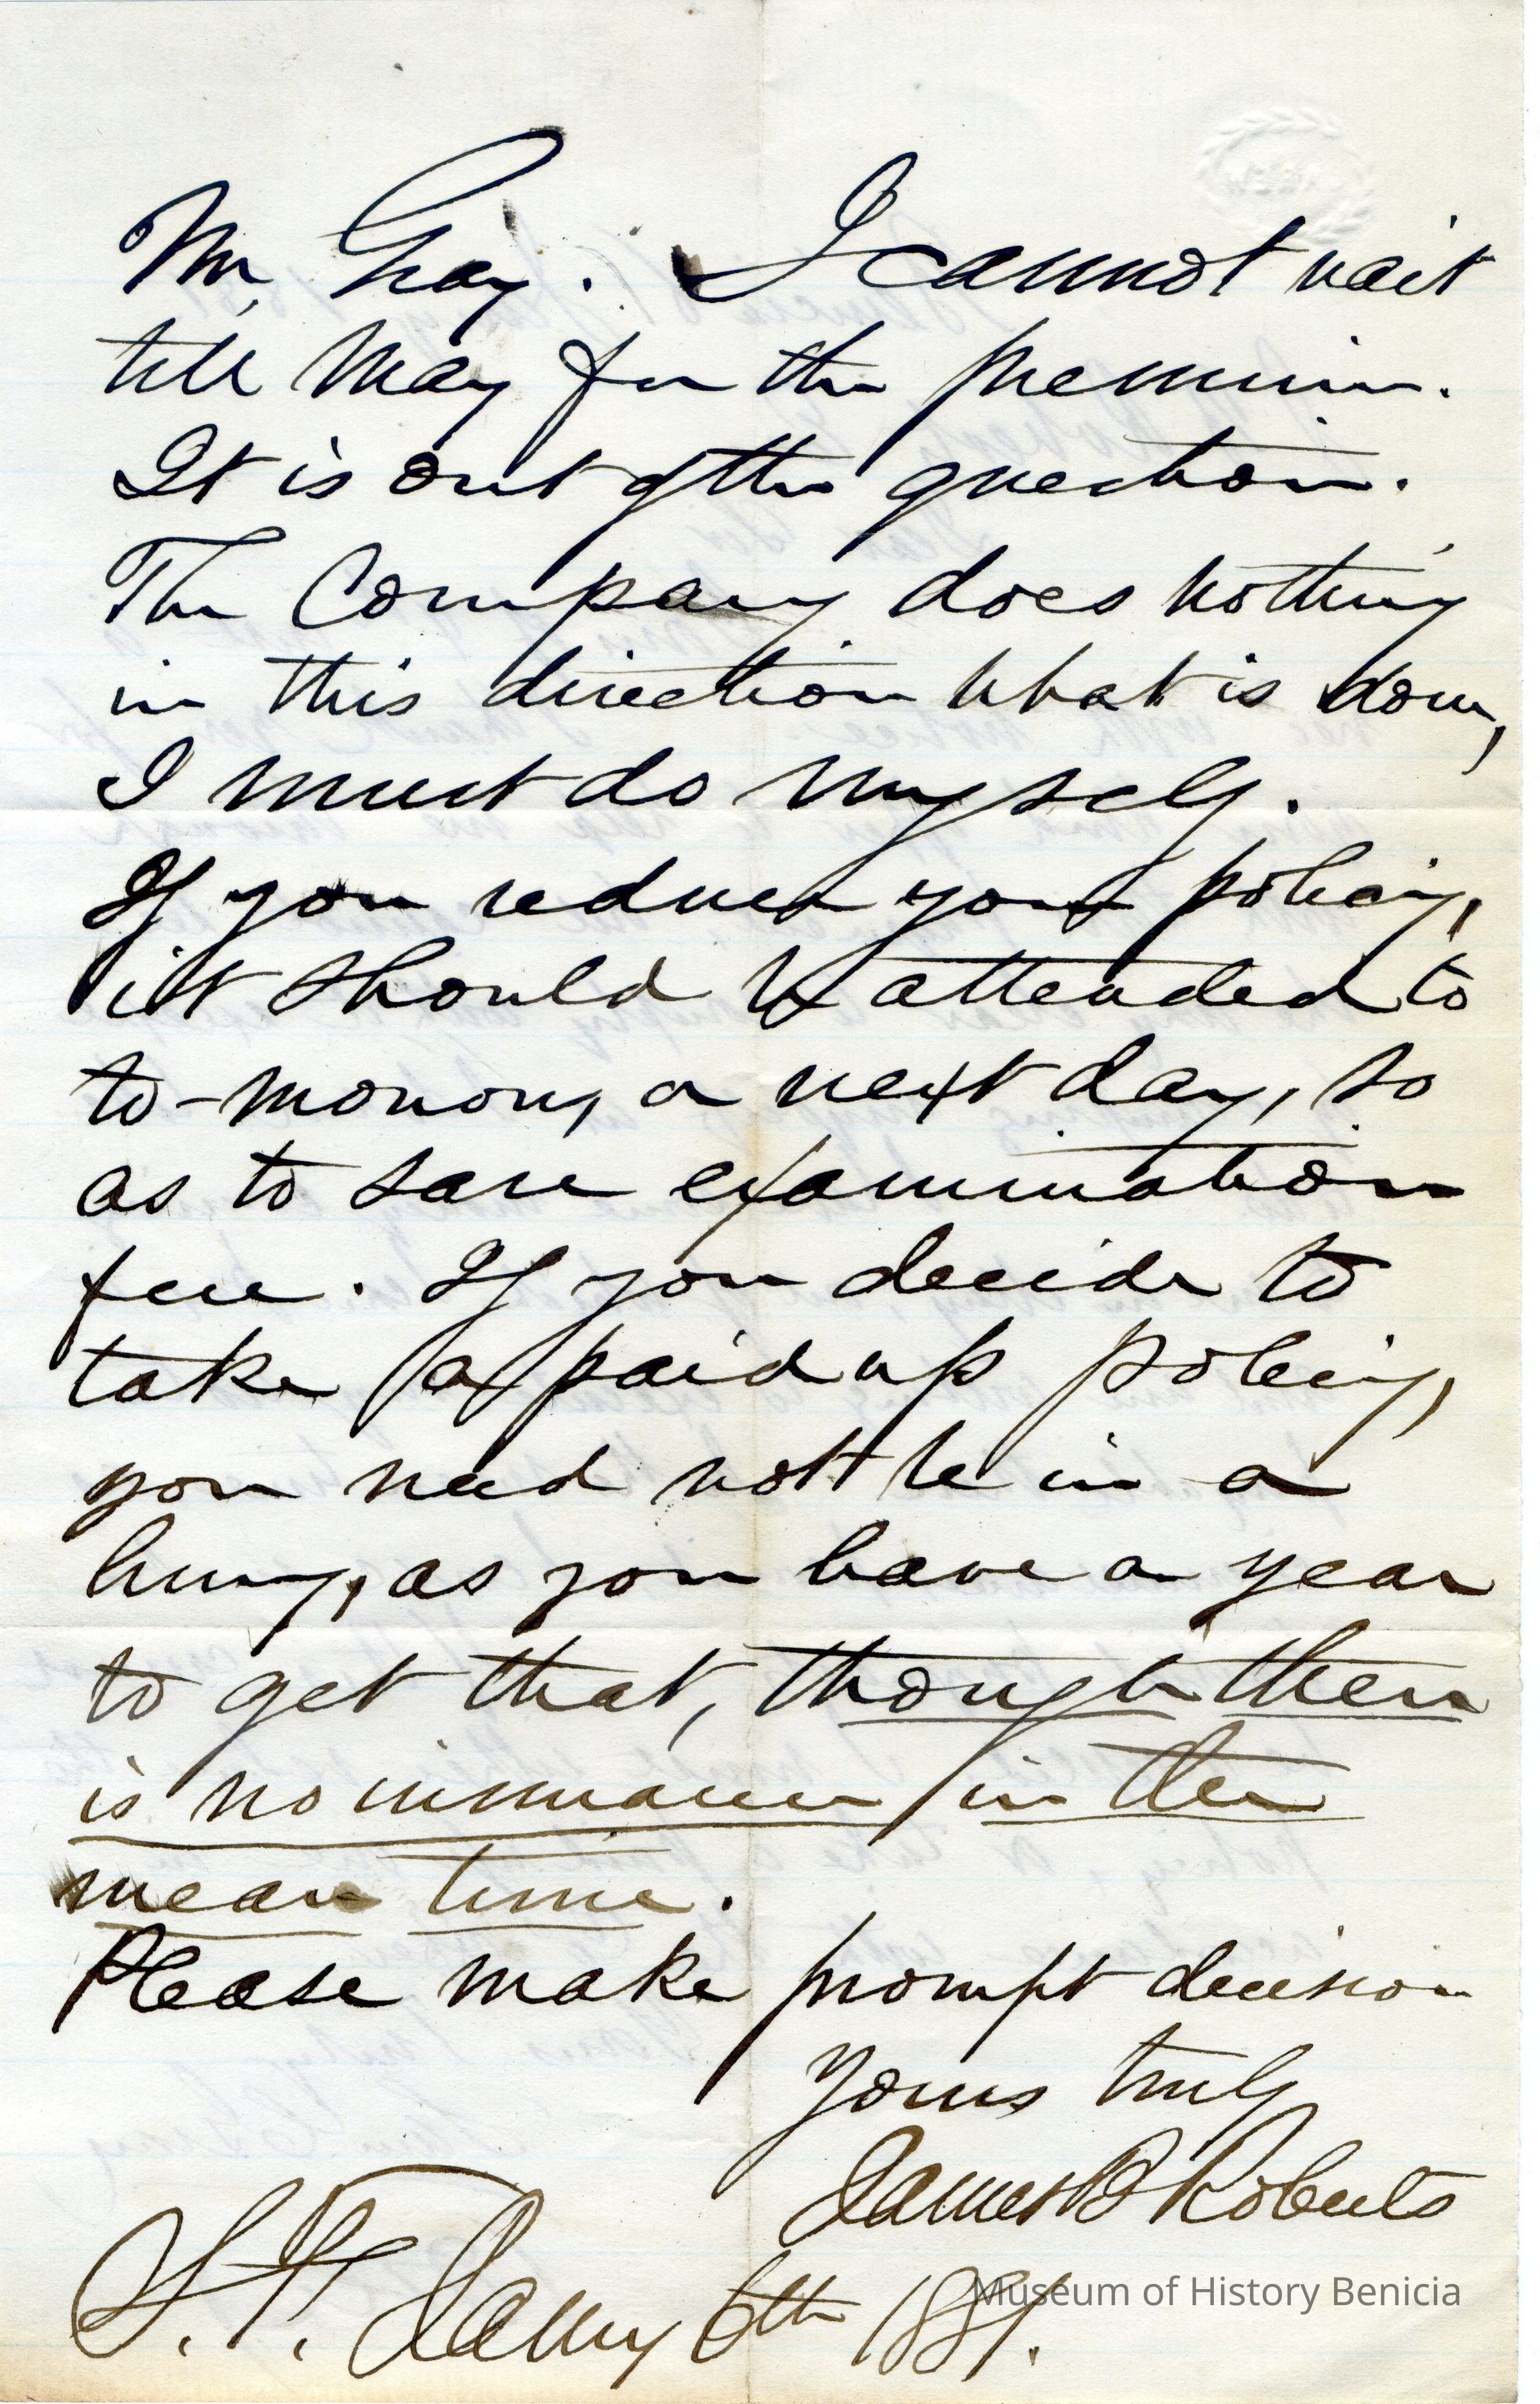 Mr. Gray. I cannot wait
till May for the premium.
It is out of the question.
The Company does nothing
in this direction what is done,
I must do myself.
If you reduce your policy,
it should be attended to
to-morrow, or next day, so
as to save examination
fee. If you decide to
take a paid up policy,
you need not be in a
hurry, as you have a year
to get that, though there
is no insurance in the
mean time.
Please make prompt decision
Yours truly
James B Roberts
S. F. Jany 6th 1881.
Museum of History Benicia